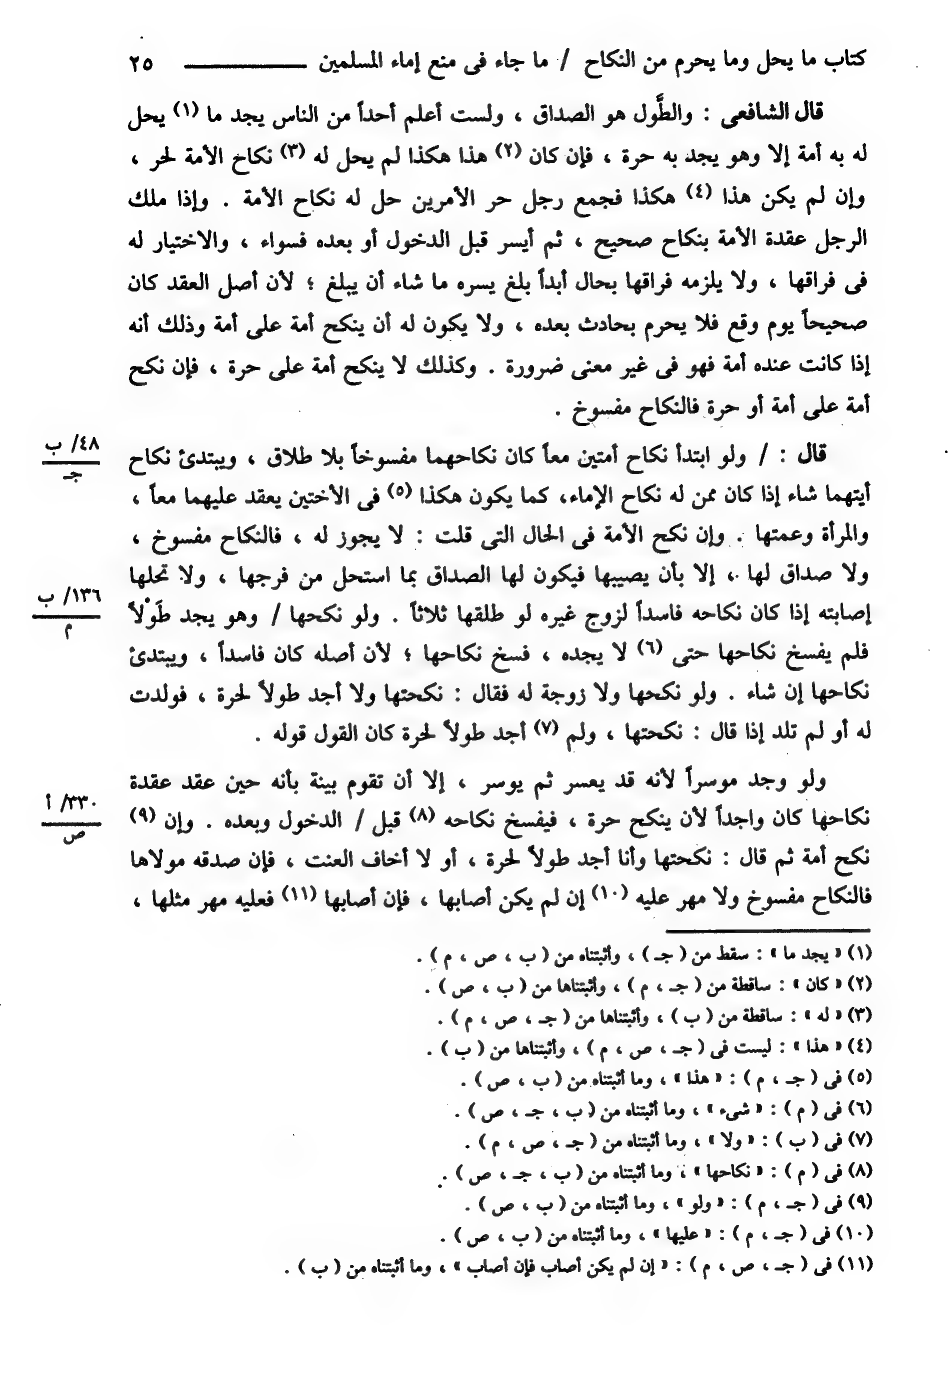 كتاب ما يحل وما يحرم من النكاح / ما جاء فى منع إماء المسلمين ٢٥
قال الشافعى : والطَّول هو الصداق ، ولست أعلم أحداً من الناس يجد ما (١) يحل
له به أمة إلا وهو يجد به حرة ، فإن كان (٢) هذا هكذا لم يحل له (٣) نكاح الأمة لحر ،
وإن لم يكن هذا (٤) هكذا فجمع رجل حر الأمرين حل له نكاح الأمة . وإذا ملك
الرجل عقدة الأمة بنكاح صحيح ، ثم أيسر قبل الدخول أو بعده فسواء ، والاختيار له
فى فراقها ، ولا يلزمه فراقها بحال أبداً بلغ يسره ما شاء أن يبلغ ؛ لأن أصل العقد كان
صحيحاً يوم وقع فلا يحرم بحادث بعده ، ولا يكون له أن ينكح أمة على أمة وذلك أنه
إذا كانت عنده أمة فهو فى غير معنى ضرورة . وكذلك لا ينكح أمة على حرة ، فإن نكح
أمة على أمة أو حرة فالنكاح مفسوخ .
٤٨/ ب
جـ
قال : / ولو ابتدأ نكاح أمتين معاً كان نكاحهما مفسوخاً بلا طلاق ، ويبتدئ نكاح
أيتهما شاء إذا كان ممن له نكاح الإماء، كما يكون هكذا (٥) فى الأختين يعقد عليهما معاً ،
والمرأة وعمتها . وإن نكح الأمة فى الحال التى قلت : لا يجوز له ، فالنكاح مفسوخ ،
ولا صداق لها ، إلا بأن يصيبها فيكون لها الصداق بما استحل من فرجها ، ولا تحلها
١٣٦/ ب
م
إصابته إذا كان نكاحه فاسداً لزوج غيره لو طلقها ثلاثاً . ولو نكحها / وهو يجد طَوْلاً
فلم يفسخ نكاحها حتى (٦) لا يجده ، فسخ نكاحها ؛ لأن أصله كان فاسداً ، ويبتدئ
نكاحها إن شاء . ولو نكحها ولا زوجة له فقال : نكحتها ولا أجد طولاً لحرة ، فولدت
له أو لم تلد إذا قال : نكحتها ، ولم (٧) أجد طولاً لحرة كان القول قوله .
ولو وجد موسراً لأنه قد يعسر ثم يوسر ، إلا أن تقوم بينة بأنه حين عقد عقدة
٣٣٠/ أ
ص
نكاحها كان واجداً لأن ينكح حرة ، فيفسخ نكاحه (٨) قبل / الدخول وبعده . وإن (٩)
نكح أمة ثم قال : نكحتها وأنا أجد طولاً لحرة ، أو لا أخاف العنت ، فإن صدقه مولاها
فالنكاح مفسوخ ولا مهر عليه (١٠) إن لم يكن أصابها ، فإن أصابها (١١) فعليه مهر مثلها ،
(١) « يجد ما » : سقط من ( جـ ) ، وأثبتناه من ( ب ، ص ، م ) .
(٢) « كان » : ساقطة من ( جـ ، م ) ، وأثبتناها من ( ب ، ص ) .
(٣) « له » : ساقطة من ( ب ) ، وأثبتناها من ( جـ ، ص ، م ) .
(٤) « هذا » : ليست فى ( جـ ، ص ، م ) ، وأثبتناها من ( ب ) .
(٥) فى ( جـ ، م ) : « هذا » ، وما أثبتناه من ( ب ، ص ) .
(٦) فى ( م ) : « شىء » ، وما أثبتناه من ( ب ، جـ ، ص ) .
(٧) فى ( ب ) : « ولا » ، وما أثبتناه من ( جـ ، ص ، م ) .
(٨) فى ( م ) : « نكاحها » ، وما أثبتناه من ( ب ، جـ ، ص ) .
(٩) فى ( جـ ، م ) : « ولو » ، وما أثبتناه من ( ب ، ص ) .
(١٠) فى ( جـ ، م ) : « عليها » ، وما أثبتناه من ( ب ، ص ) .
(١١) فى ( جـ ، ص ، م ) : « إن لم يكن أصاب فإن أصاب » ، وما أثبتناه من ( ب ) .